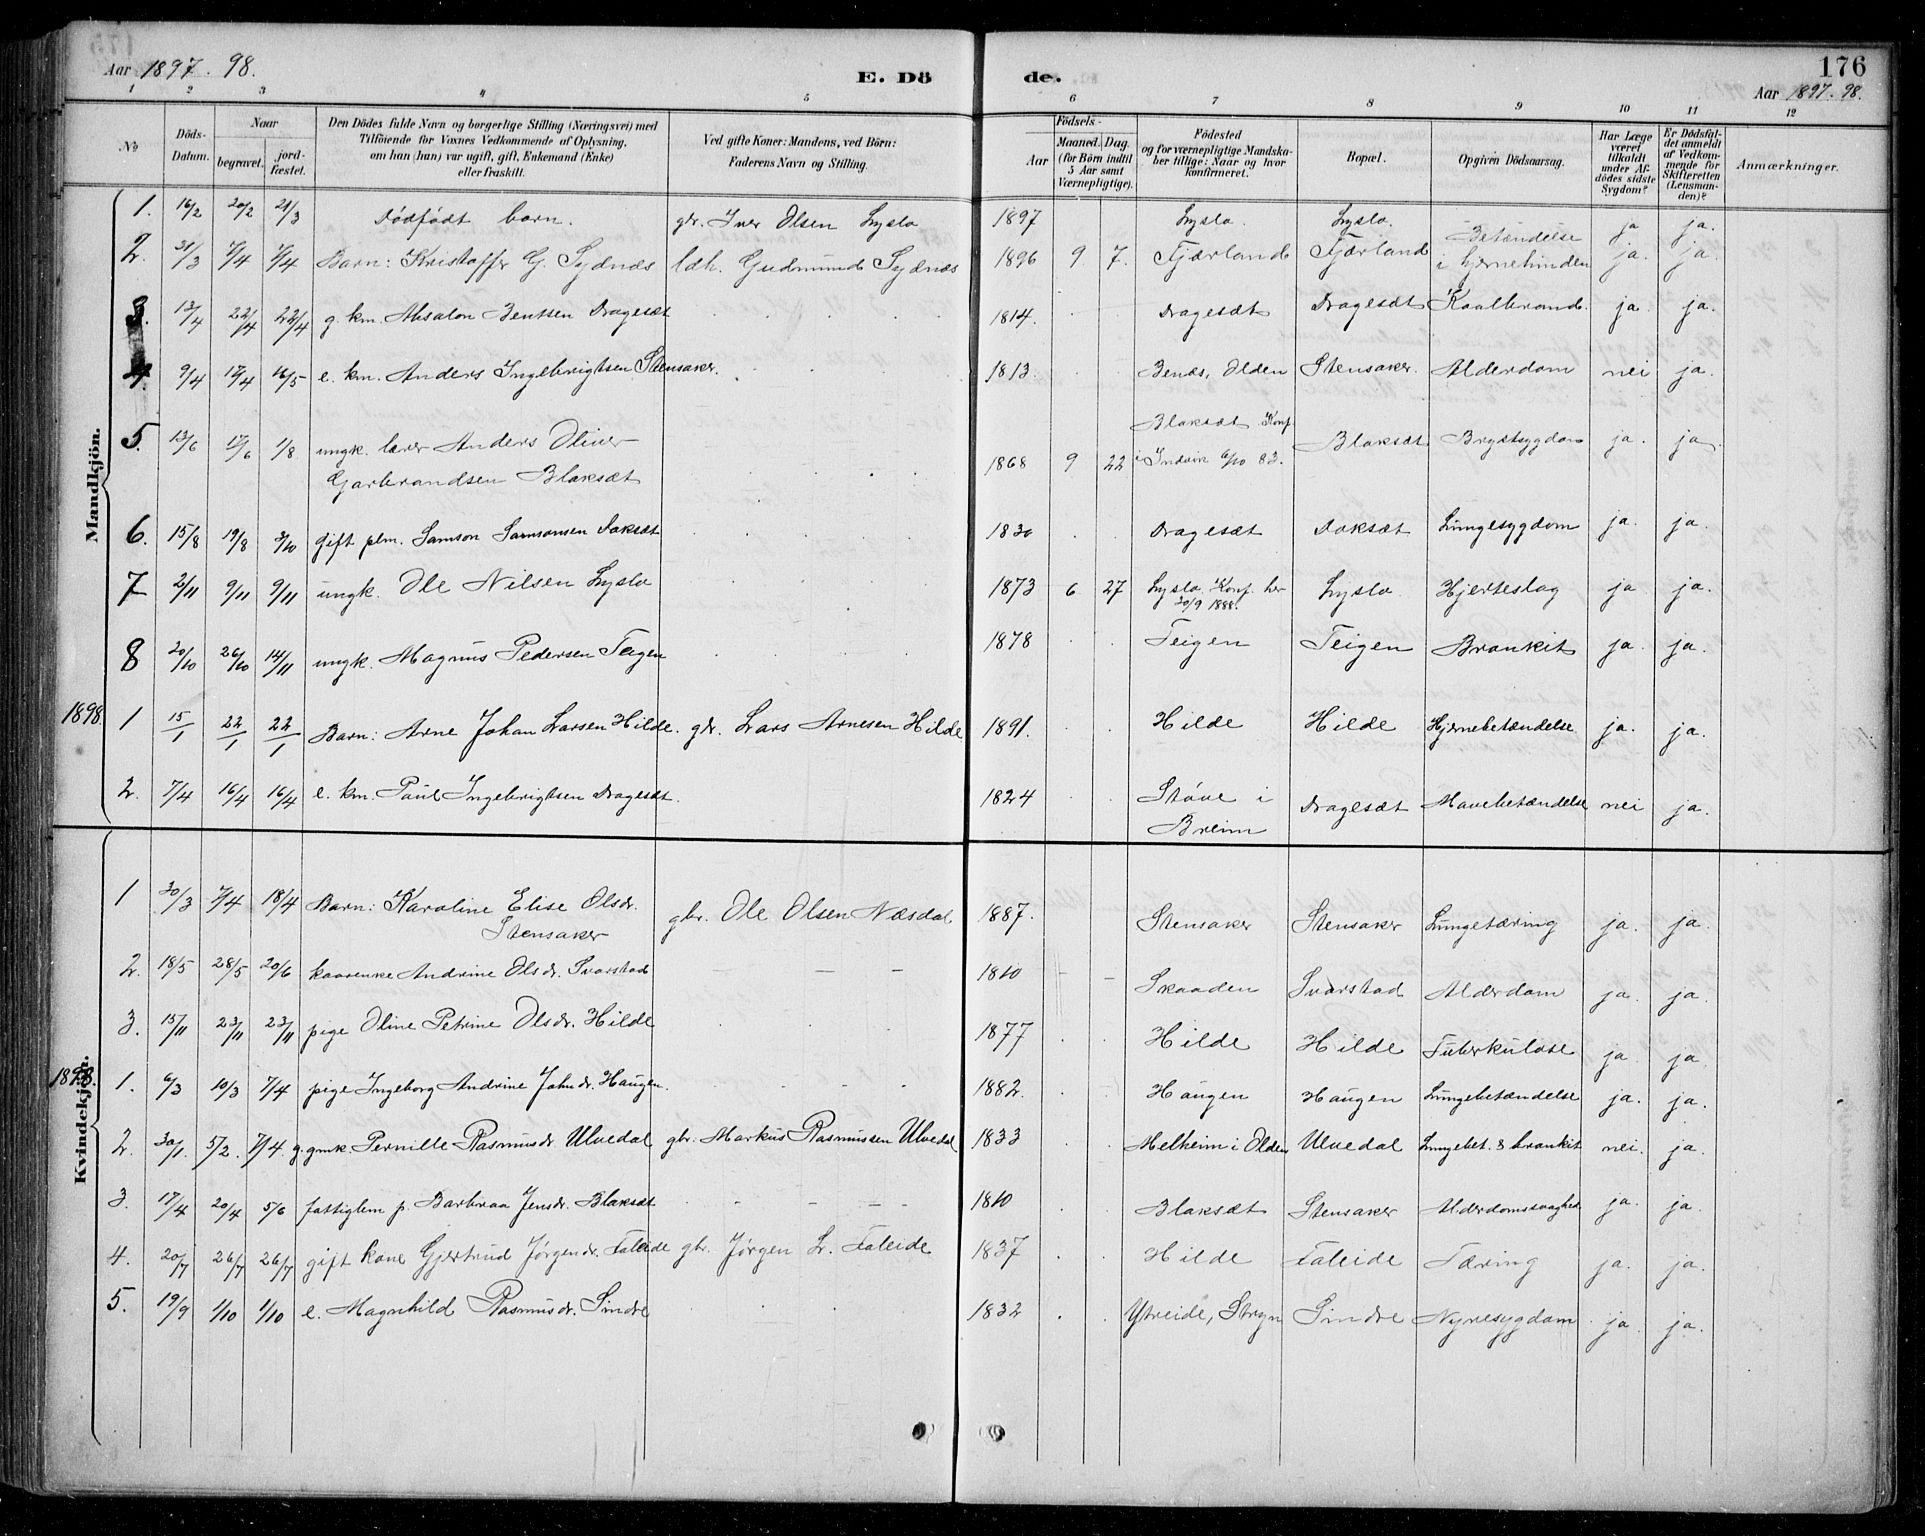 Aar 1897. 98.
E. Döde.
176
Aar 1897. 98.
1 2 3 4 5 6 7 8 9 10 11 12
No
Döds-Datum.
Naar
begravet.
jordfæstet.
Den Dödes fulde Navn og borgerlige Stilling (Næringsvei) med
Tilföiende for Voxnes Vedkommende af Oplysning,
om han (hun) var ugift, gift, Enkemand (Enke)
eller fraskilt.
Ved gifte Koner: Mandens, ved Börn:
Faderens Navn og Stilling.
Födsels-
Aar
Maaned. Dag.
(for Börn indtil
5 Aar samt
Værnepligtige).
Födested
og for værnepligtige Mandskaber tillige: Naar og hvor
konfirmeret.
Bopæl.
Opgiven Dödsaarsag.
Har Læge været tilkaldt under Afdödes sidste Sygdom?
Er Dödsfaldet anmeldt af Vedkommende for Skifteretten (Lensmanden)?
Anmærkninger.
Mandkjön.
1. 16/2 20/2 21/3 Dödfödt barn. gbr. Iver Olsen Lyslo 1897 Lyslo. Lyslo. ja ja.
2. 31/3 7/4 7/4 Barn: Kristoffer G. Sydnæs ldh. Gudmund Sydnæs 1896 9. 7. Fjærland Fjærland Betændelse i hjernehinden ja. ja.
3. 13/4 22/4 22/4 g. km. Absalon Bentsen Dragesæt 1814. Dragesæt Dragesæt Kaalbrand. ja. ja.
4. 9/4 17/4 16/5 e. km. Anders Ingebrigtsen Stensaker. 1813. Benæs, Olden Stensaker. Alderdom nei ja.
5. 13/6 17/6 1/8 ungk. lærer Anders Oliver
Garbrandsen Blaksæt 1868 9 22 Blaksæt Konf. i Indvik 6/10 83. Blaksæt Brystsygdom ja. ja.
6. 15/8 19/8 3/10 gift plm. Samson Samsonsen Daksæt 1830 Dragesæt Daksæt Lungesygdom ja. ja.
7 2/11 9/11 9/11 ungk. Ole Nilsen Lyslo 1873 6 27 Lyslo. Konf. her 30/9 1888. Lyslo Hjerteslag ja ja.
8 20/10 26/10 14/11 ungk. Magnus Pedersen Teigen 1878 Teigen Teigen Bronkit ja. ja.
1898. 1 15/1 22/1 22/1 Barn: Arne Johan Larsen Hilde. gbr. Lars Arnesen Hilde 1891. Hilde Hilde Hjernebetændelse ja. ja.
2. 7/4 16/4 16/4 e. km. Paul Ingebrigtsen Dragesæt. 1824 Støve i
Breim Dragesæt Mavebetændelse nei ja.
Kvindekjön.
1 30/3 7/4 18/4 Barn: Karoline Elise Olsdr.
Stensaker gbr. Ole Olsen Næsdal 1887. Stensaker Stensaker Lungetæring ja. ja.
2. 18/5 28/5 20/6 kaarenke Andrine Olsdr. Svarstad 1810 Skaaden Svarstad Alderdom ja. ja.
3. 15/11 23/11 23/11 pige Oline Petrine Olsdr. Hilde 1877 Hilde Hilde Tuberkulose ja. ja.
1898. 1. 6/3 10/3 7/4 pige Ingeborg Andrine Johndr. Haugen. 1882. Haugen Haugen Lungebetændelse ja. ja.
2. 30/1. 5/2. 7/4. g. gmk. Pernille Rasmusdr Ulvedal gbr. Markus Rasmussen Ulvedal 1833 Melheim i Olden Ulvedal Lungebet. & bronkit nei. ja.
3. 17/4 20/4 5/6 fattiglem p. Barbraa Jensdr. Blaksæt 1810 Blaksæt Stensaker Alderdomssvaghed ja. ja.
4. 20/7 26/7 26/7 gift kone Gjertrud Jørgendr. Faleide gbr. Jørgen L. Faleide 1837 Hilde Faleide Tæring ja. ja.
5. 19/9 1/10 1/10 e. Magnhild Rasmusdr. Sindre 1832 Ytreide, Stryn Sindre Nyresygdom ja. ja.